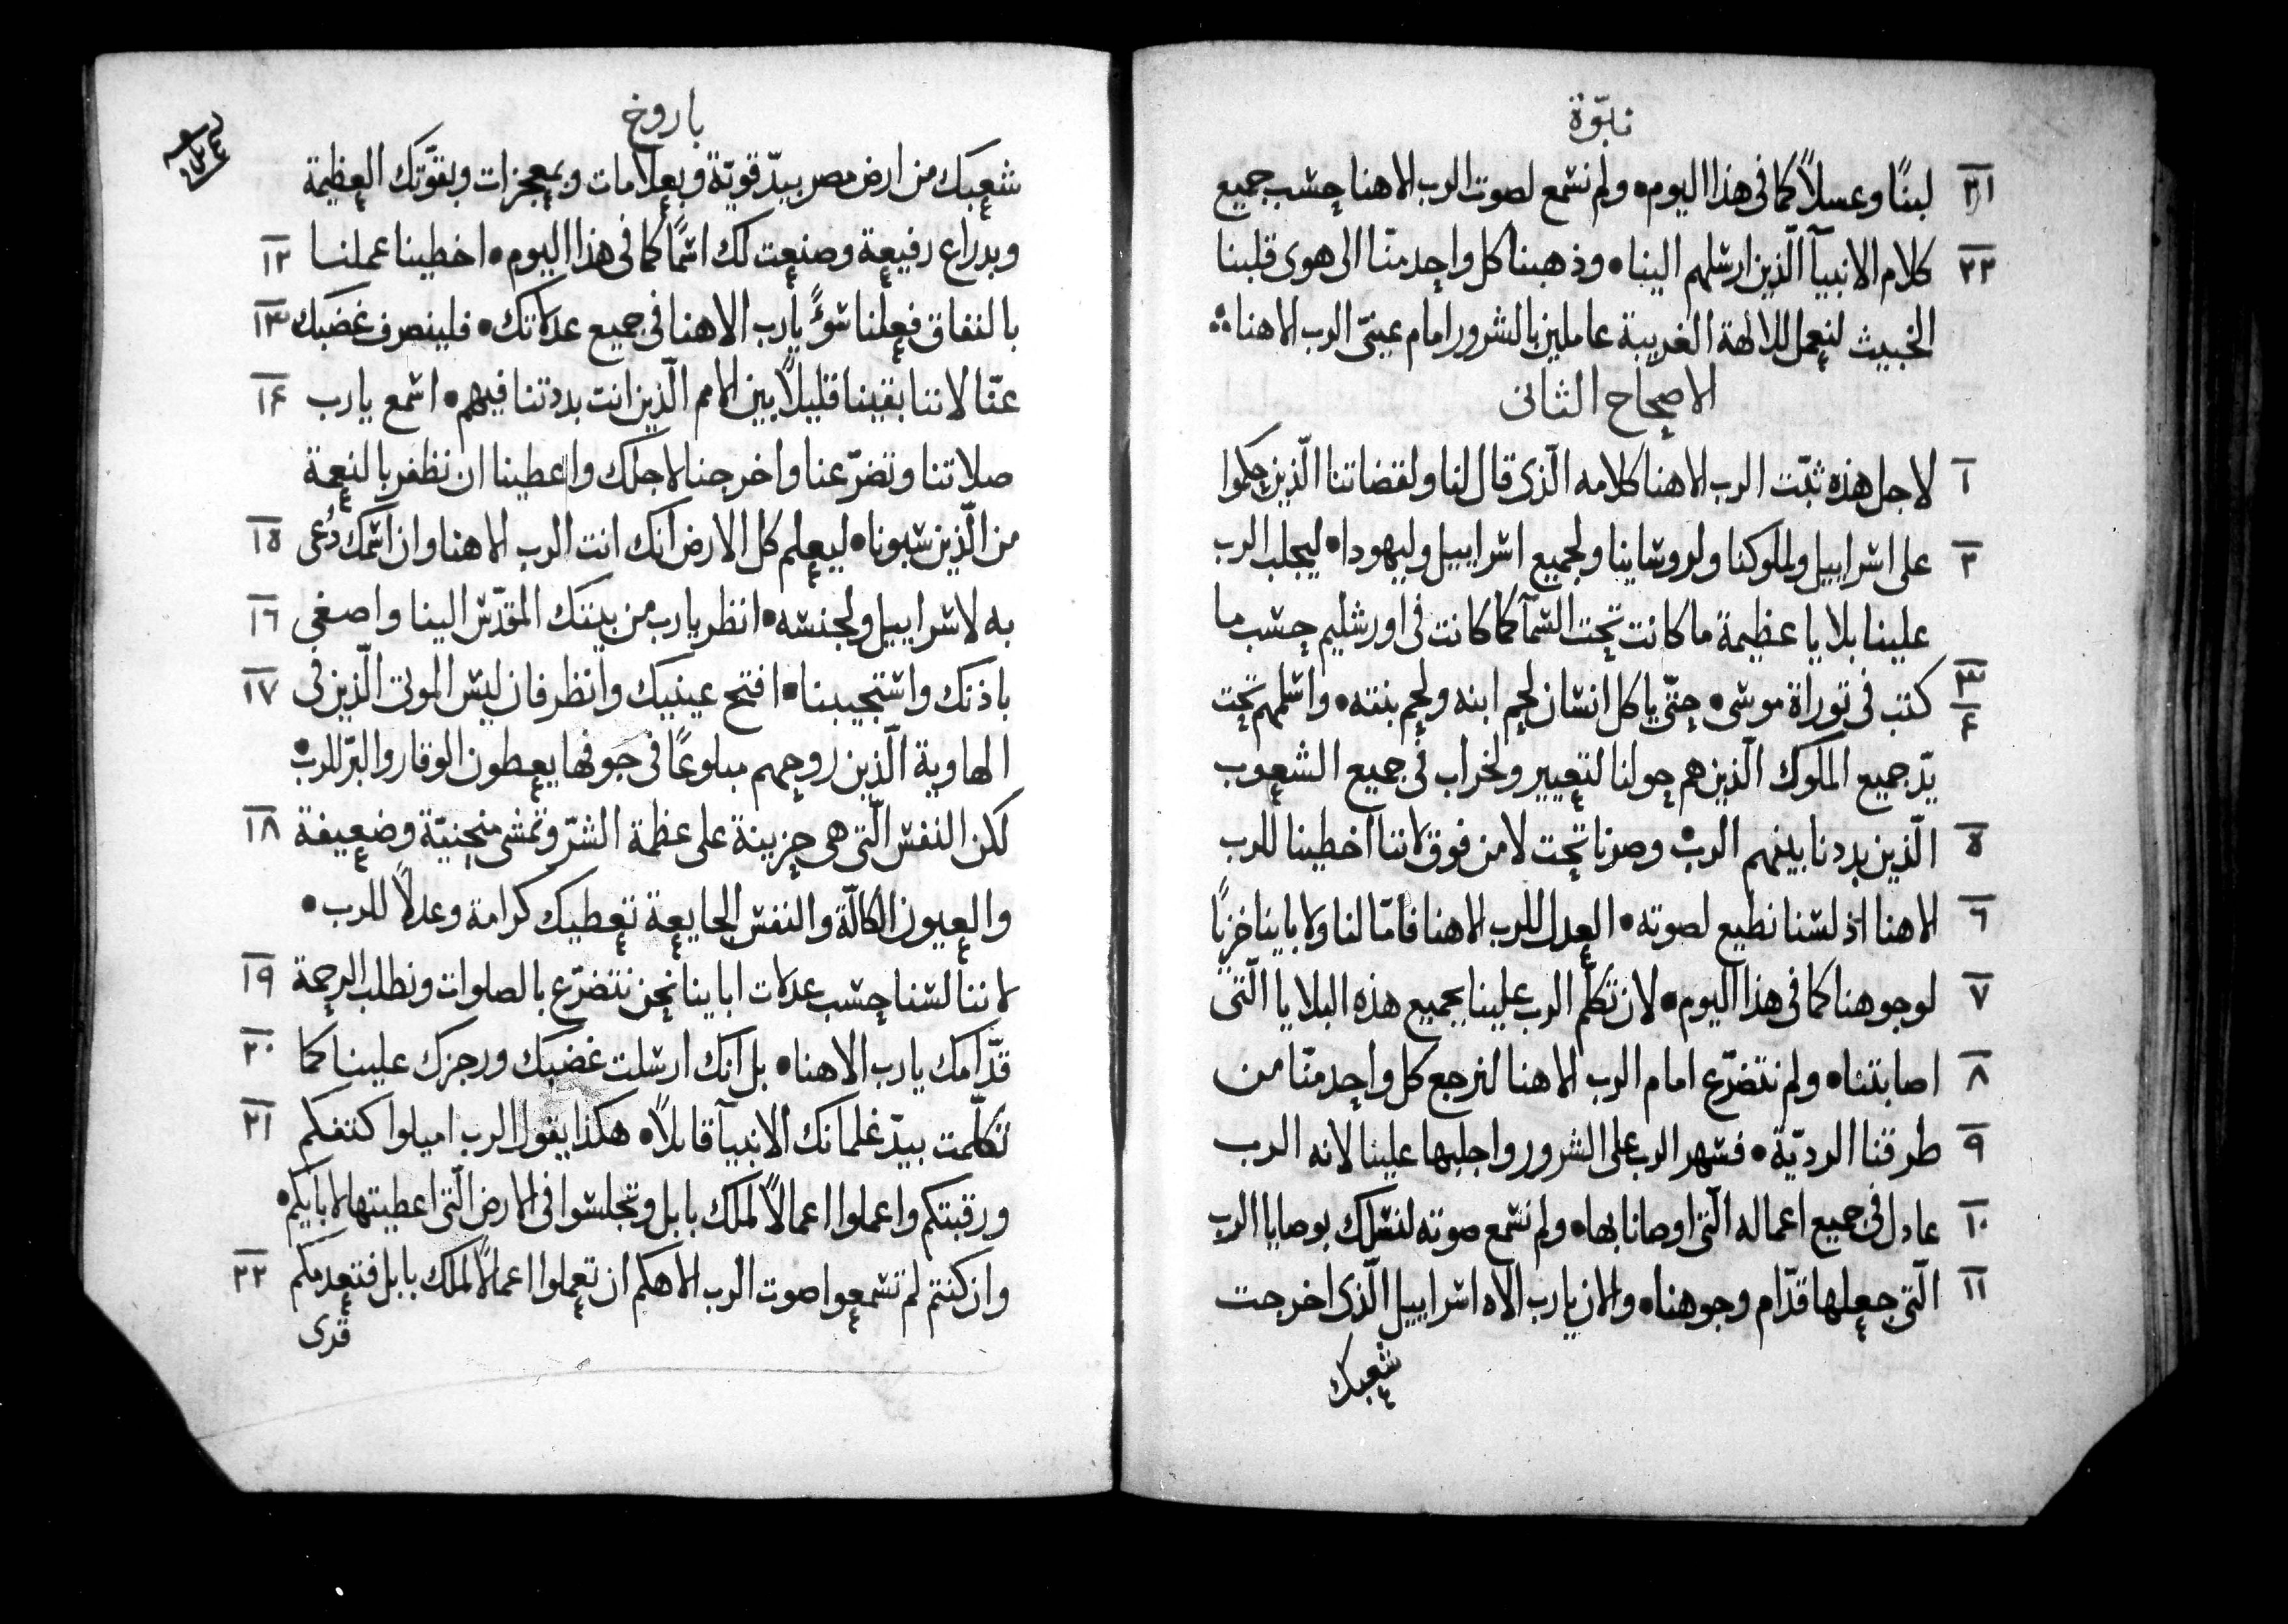 نبوّة
٢١ لبنًا وعسلاً كما فى هذا اليوم • ولم نسمع لصوت الرب الاهنا حسب جميع
٢٢ كلام الانبيآ الّذين ارسلهم الينا • وذهبنا كل واحد منّا الى هوى قلبنا
الخبيث لنعمل للالهة الغريبة عاملين بالشرور امام عينىّ الرب الاهنا
الاصحاح الثانى
١ لاجل هذه ثبّت الرب الاهنا كلامه الّذى قال لنا ولقضاتنا الّذين حكموا
٢ على اسراييل ولملوكنا ولروساينا ولجميع اسراييل وليهودا • ليجلب الرب
علينا بلايا عظيمة ما كانت تحت السمآ كما كانت فى اورشليم حسب ما
٣ ٤ كتب فى توراة موسى • حتّى ياكل انسان لحم ابنه ولحم بنته • واسلمهم تحت
يدّ جميع الملوك الّذين هم حولنا لتعيير ولخراب فى جميع الشعوب
٥ الّذين بددنا بينهم الرب • وصرنا تحت لا من فوق لاننا اخطينا للرب
٦ الاهنا اذ لسنا نطيع لصوته • العدل للرب الاهنا فامّا لنا ولاباينا خزيًا
٧ لوجوهنا كما فى هذا اليوم • لان تكلّم الرب علينا بجميع هذه البلايا الّتى
٨ اصابتنا • ولم نتضرّع امام الرب الاهنا لنرجع كل واحد منّا من
٩ طرقنا الرديّة • فسهر الرب على الشرور واجلبها علينا لانه الرب
١٠ عادل فى جميع اعماله الّتى اوصانا بها • ولم نسمع صوته لنسلك بوصايا الرب
١١ الّتى جعلها قدّام وجوهنا • والان يا رب الاه اسراييل الّذى اخرجت
شعبك
باروخ
شعبك من ارض مصر بيدّ قويّة وبعلامات وبمعجزات وبقوّتك العظيمة
وبدراع رفيعة وصنعت لك اسمًا كما فى هذا اليوم • اخطينا عملنا ١٢
بالنفاق فعلنا سوءً يا رب الاهنا فى جميع عدلاتك • فلينصرف غضبك ١٣
عنّا لاننا بقينا قليلاً بين الامم الّذين انت بددتنا فيهم • اسمع يا رب ١٤
صلاتنا وتضرّعنا واخرجنا لاجلك واعطينا ان نظفر بالنعمة
من الّذين سبونا • ليعلم كل الارض انك انت الرب الاهنا وان اسمك دُعى ١٥
به لاسراييل ولجنسه • انظر يا رب من بيتك المقدّس الينا واصغى ١٦
باذنك واستجيبنا • افتح عينيك وانظر فان ليس الموتى الّذين فى ١٧
الهاوية الّذين روحهم مبلوعًا فى جوفها يعطون الوقار والبرّ للرب •
لكن النفس الّتى هى حزينة على عظمة الشرّ وتمشى منحنيّة وضعيفة ١٨
والعيون الكالّة والنفس الجايعة تعطيك كرامة وعدلاً للرب •
لاننا لسنا حسب عدلات اباينا نحن نتضرّع بالصلوات ونطلب الرحمة ١٩
قدّامك يا رب الاهنا • بل انّك ارسلت غضبك ورجزك علينا كما ٢٠
تكلّمت بيدّ غلمانك الانبيآ قايلاً • هكذا يقول الرب اميلوا كتفكم ٢١
ورقبتكم واعملوا اعمالاً لملك بابل وتجلسوا فى الارض الّتى اعطيتها لابايكم •
وان كنتم لم تسمعوا صوت الرب الاهكم ان تعملوا اعمالاً لملك بابل فتعدمكم ٢٢
قرى